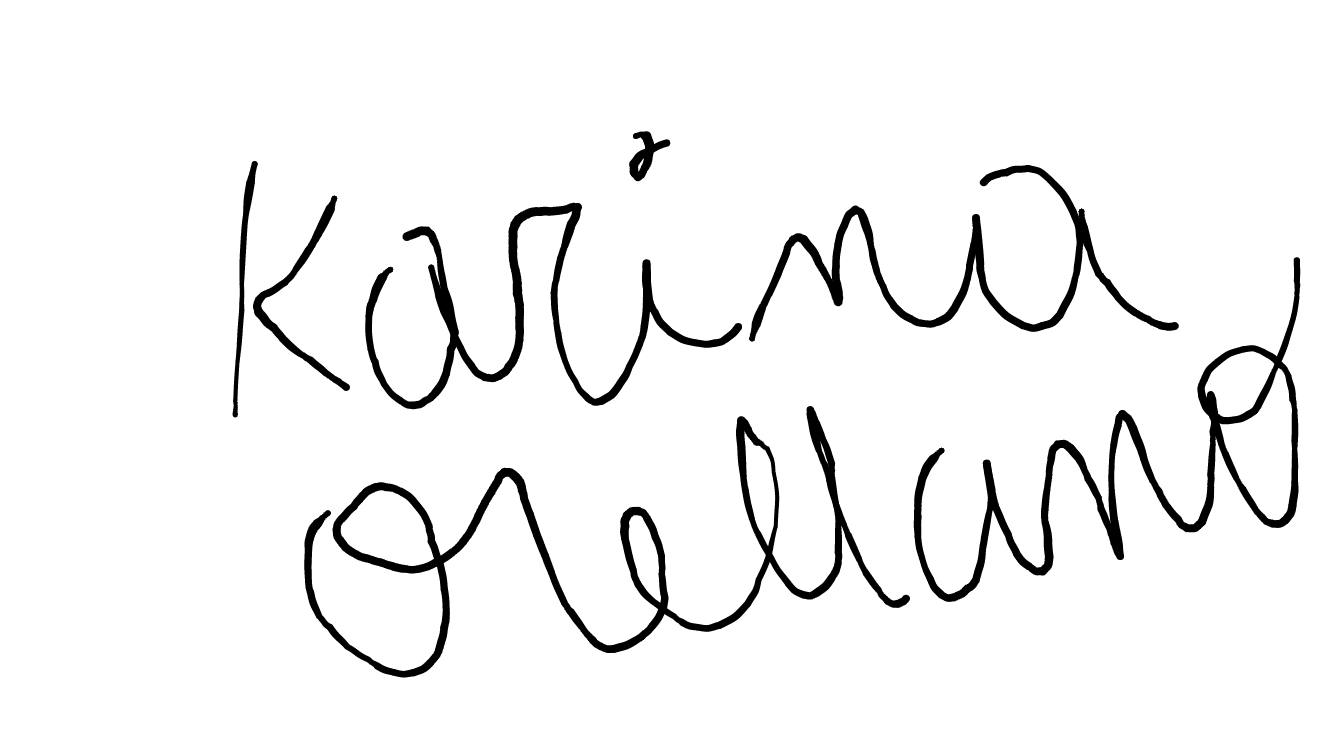 Karina
Orellano